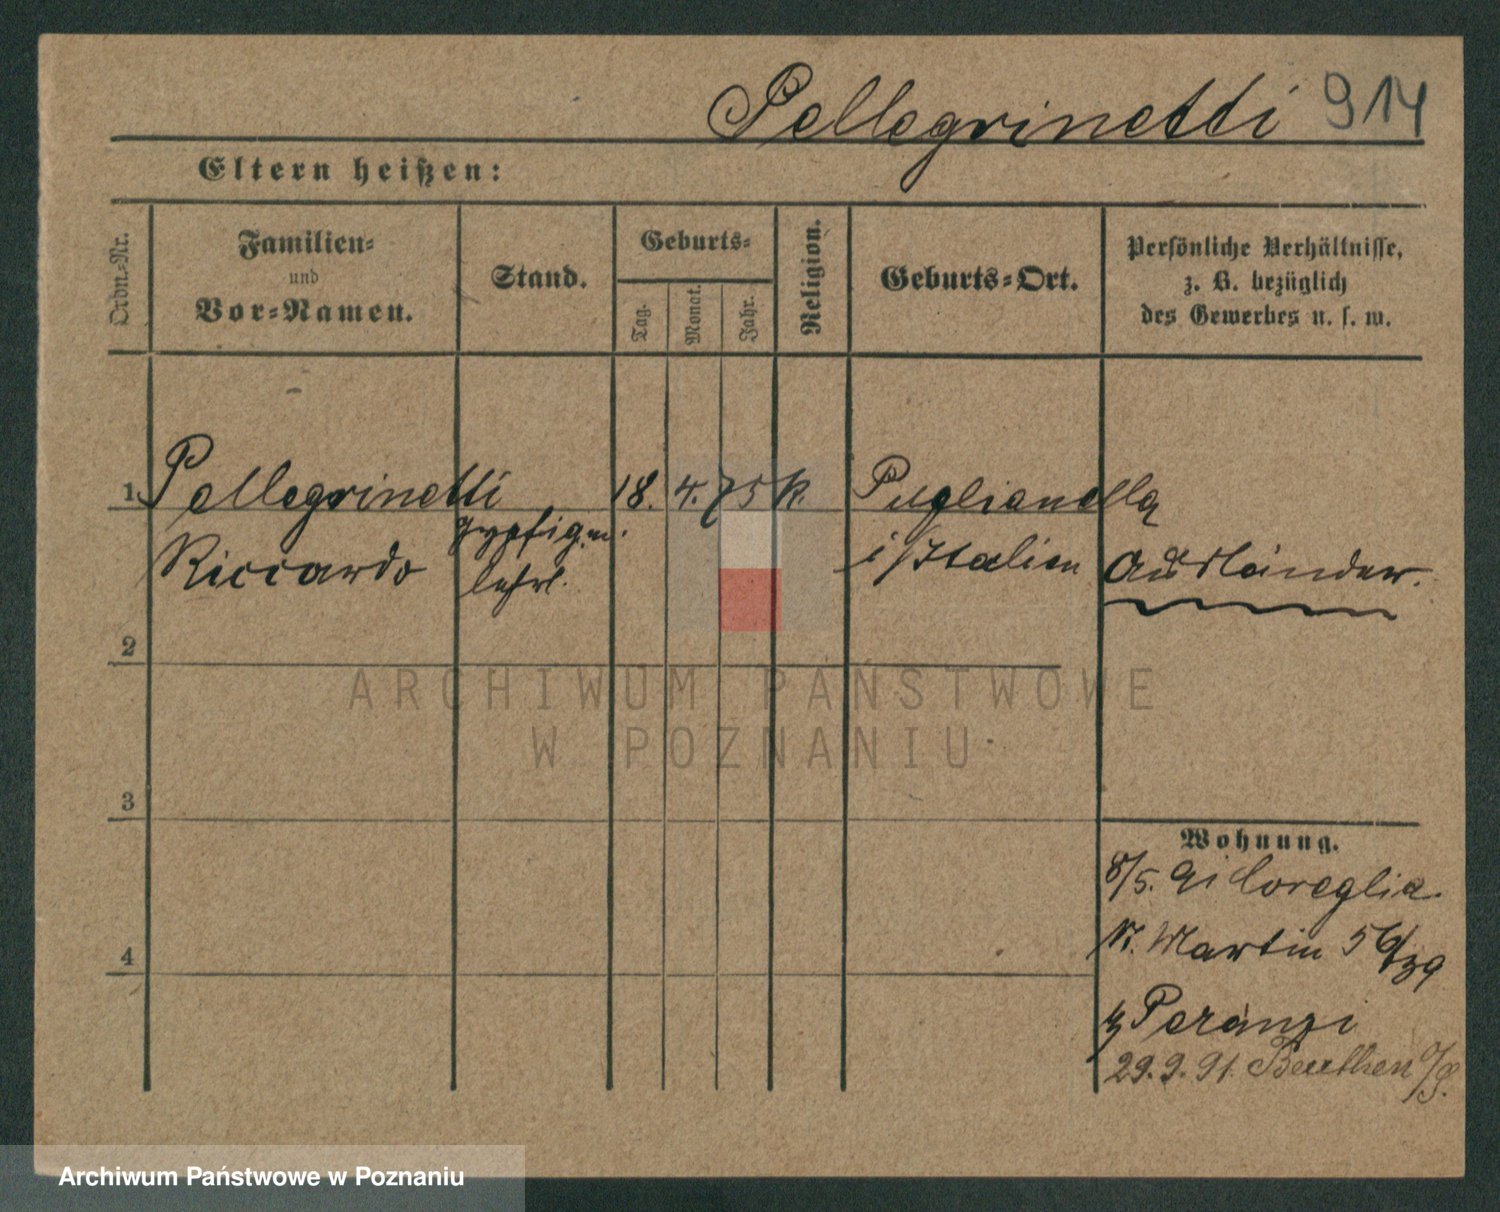 Pellegrinetti 914
Eltern heißen:
Ordn.-Nr.
Familien-
und
Vor-Namen.
Stand.
Geburts-
Tag.
Monat.
Jahr.
Religion.
Geburts-Ort.
Persönliche Verhältnisse,
z. B. bezüglich
des Gewerbes u. s. w.
1 Pellegrinetti 18. 4. 75 k. Puglianella
Riccardo
gypsfig.m.
lehrl.
i/Italien
Ausländer.
2
3
4
ARCHIWUM PAŃSTWOWE
W POZNANIU
Wohnung.
8/5. 91 Coreglia
St. Martin 56/
Peranzi
29.9.91. Beuthen O/S.
Archiwum Państwowe w Poznaniu